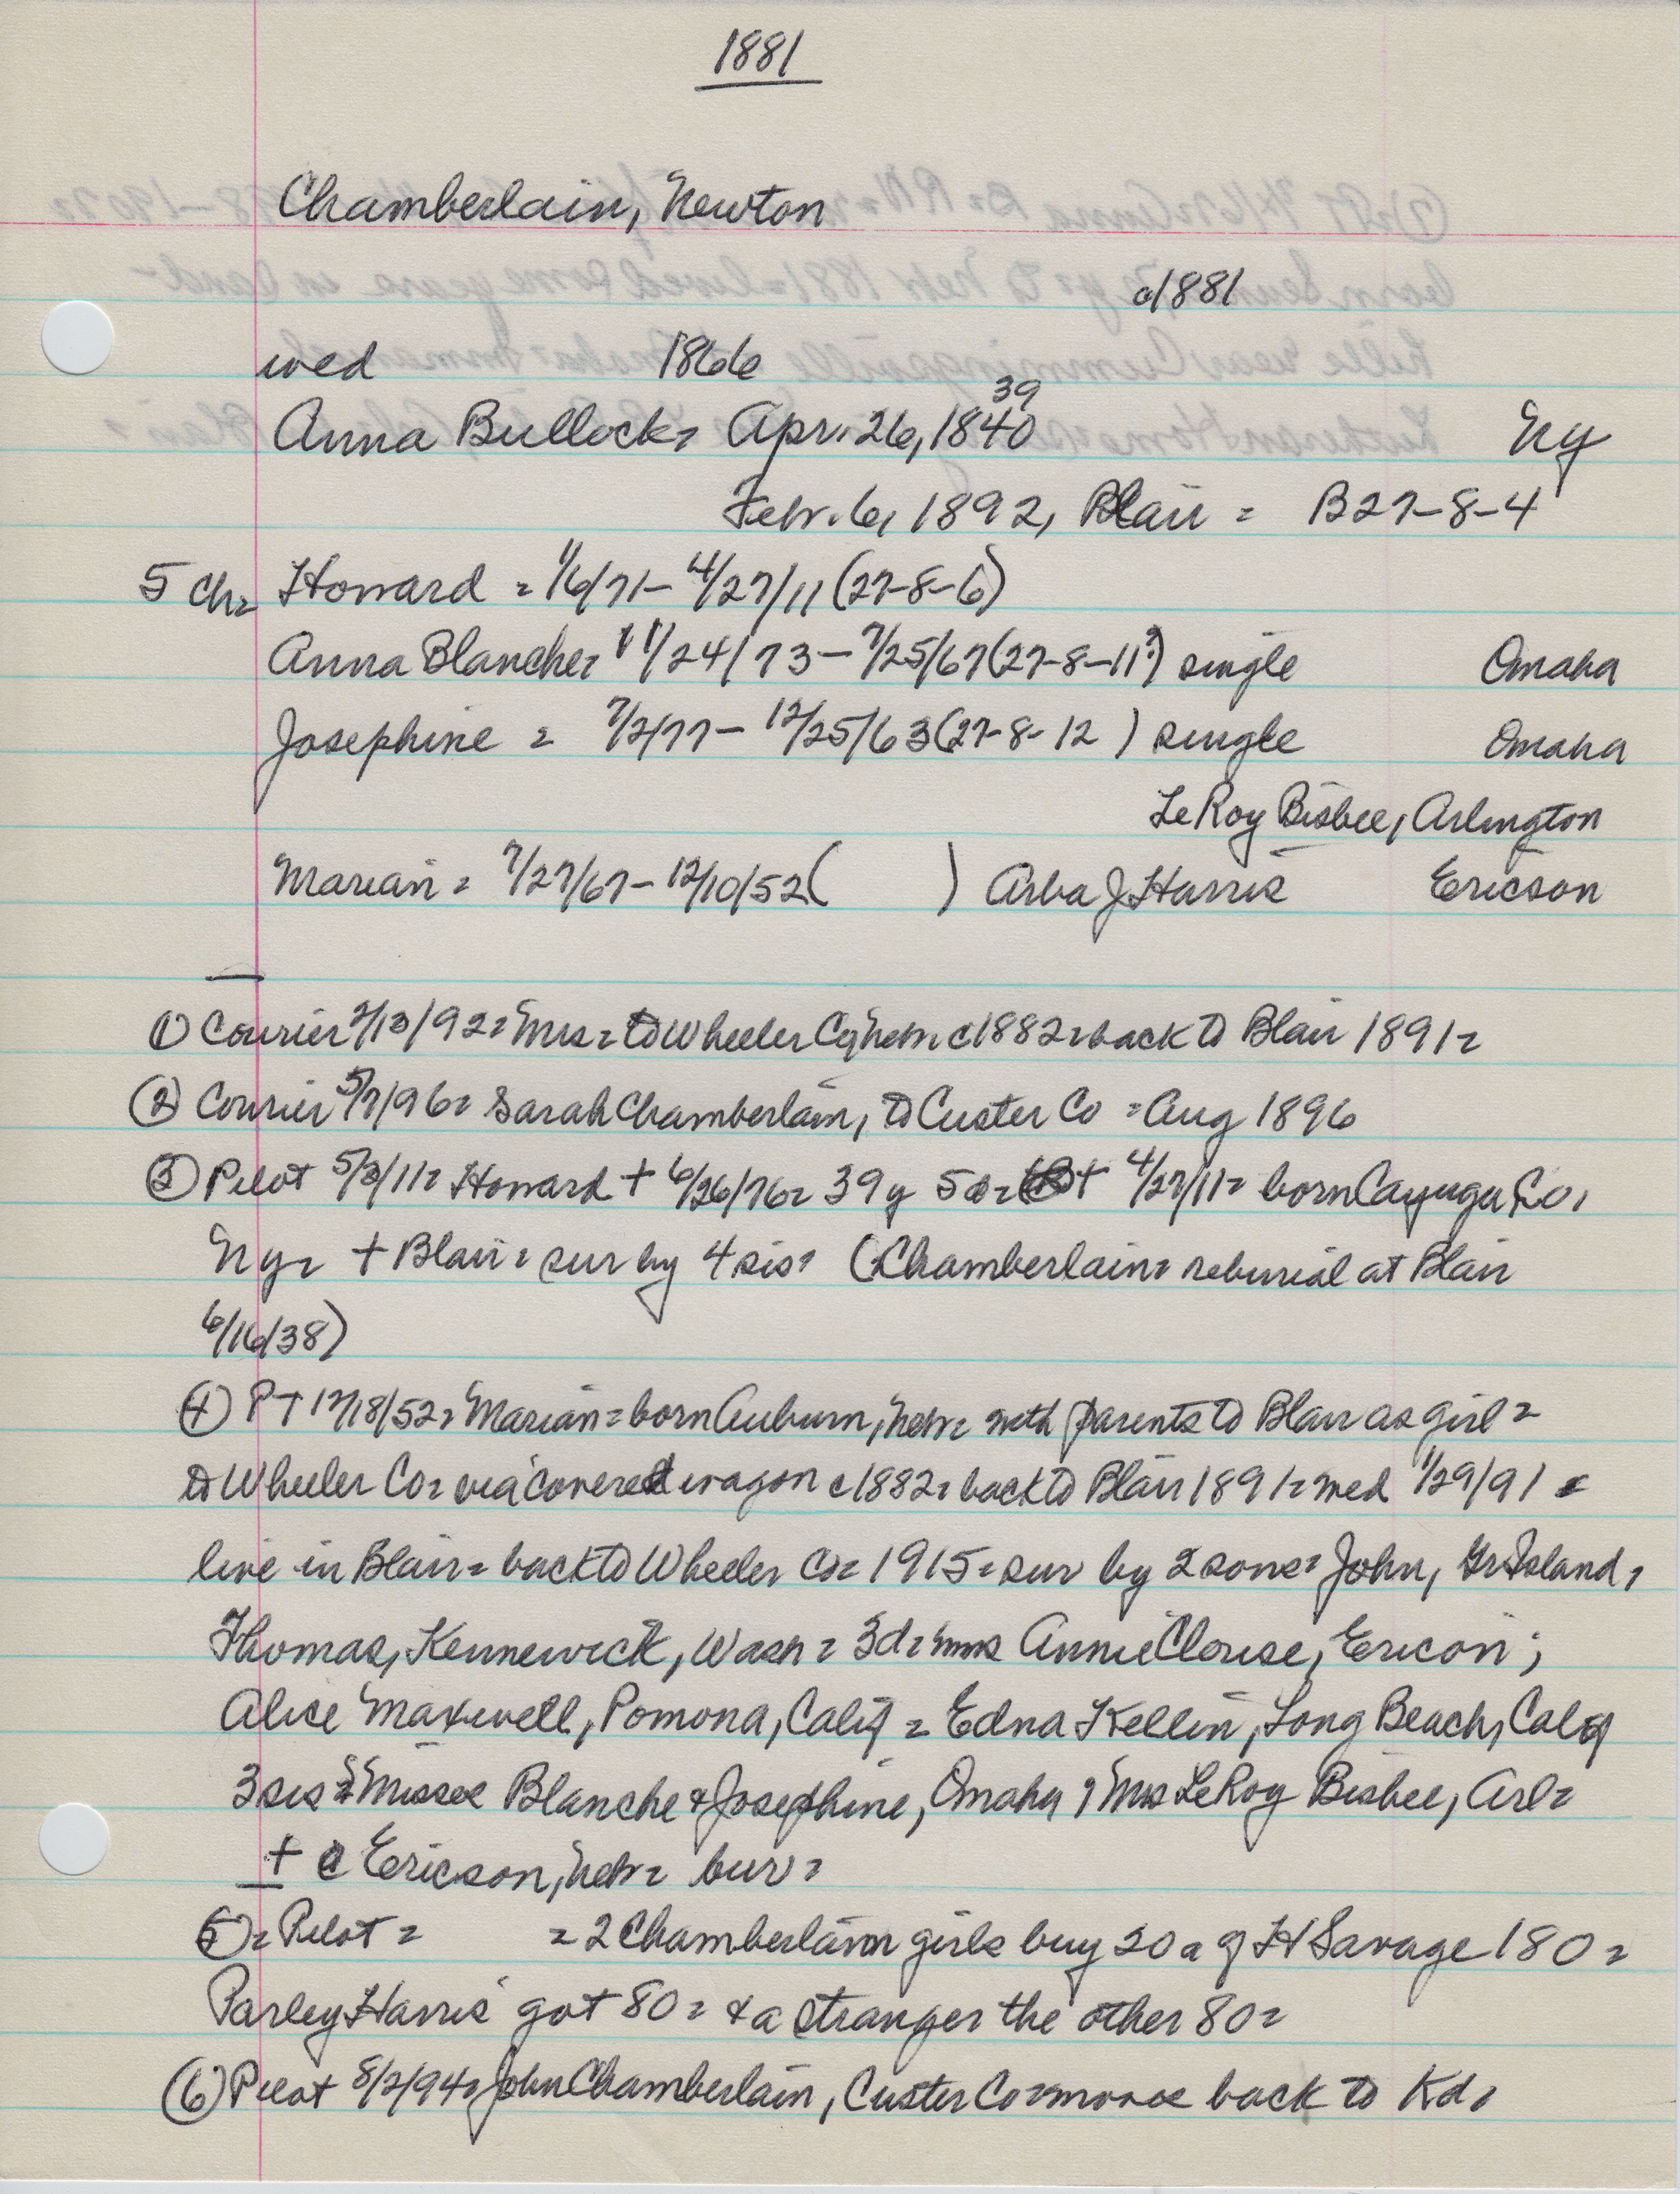 1881
Chamberlain, Newton
c1881
wed 1866
39
Anna Bullock= Apr. 26, 1840 Ny
Febr. 6, 1892, Blair = B27-8-4
5 ch= Howard = 1/6/71- 4/27/11 (27-8-6)
Anna Blanche= 11/24/73 - 7/25/67 (27-8-11?) single Omaha
Josephine = 7/2/77- 12/25/63 (27-8-12 ) single Omaha
LeRoy Bisbee, Arlington
Marian = 7/27/67- 12/10/52 ( ) Arba J Harris Ericson
(1) Courier 2/13/92= Mrs= to Wheeler Cy Nebr. c1882= back to Blair 1891=
(2) Courier 5/7/96= Sarah Chamberlain, to Custer Co = Aug 1896
(3) Pilot 5/3/11= Howard + 6/26/76= 39y 5 + 4/27/11= born Cayuga Co,
Ny= + Blair= sur by 4 sis= (Chamberlain= reburial at Blair
6/16/38)
(4) PT 12/18/52= Marian= born Auburn, Nebr= with parents to Blair as girl=
to Wheeler Co= via covered wagon c1882= back to Blair 1891= wed 1/29/91 =
live in Blair= back to Wheeler Co= 1915= sur by 2 sons= John, Gr Island,
Thomas, Kennewick, Wash= 3d= mms Annie Clouse, Ericson;
Alice Maxwell, Pomona, Calif = Edna Kellin, Long Beach, Calif
3 sis= Misses Blanche & Josephine, Omaha, Mrs LeRoy Bisbee, Arl=
+ c Ericson, Nebr= bur=
(5)= Pilot = = 2 Chamberlain girls buy 20 a of H Savage 180=
Parley Harris got 80= & a stranger the other 80=
(6) Pilot 8/2/94= John Chamberlain, Custer Co= moves back to Kd=